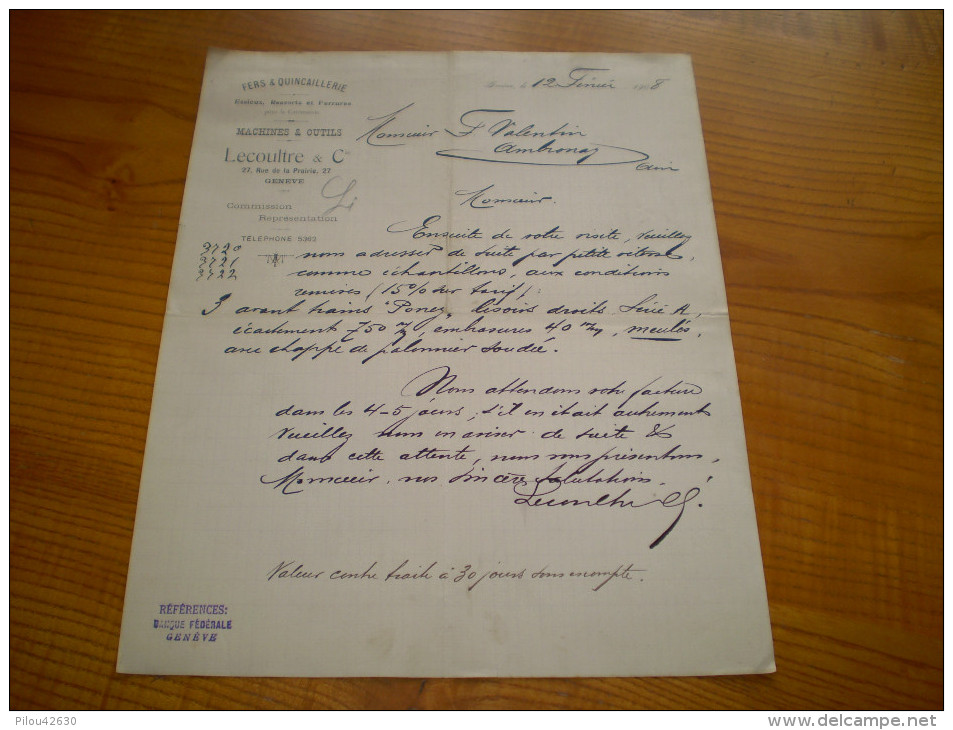 FERS & QUINCAILLERIE
Essieux, Ressorts et Ferrures
pour la Carrosserie
MACHINES & OUTILS
Lecoultre & Cie
27, Rue de la Prairie, 27
GENÈVE
Commission
Représentation
TÉLÉPHONE 5363
le 12 Février 8
Monsieur F. Valentin
Ambronay
Ain
Monsieur.
Ensuite de votre visite, veuillez
3720
3721
3722
nous adresser de suite par petite vitesse,
comme échantillons, aux conditions
remises (15% sur tarif):
3 avant trains "Poney, lisoirs droits Série A,
écartement 750 m/m, embrasures 40 m/m, meulés,
avec chappe de palonnier soudée.
Nous attendons votre facture
dans les 4-5 jours, s'il en était autrement
veuillez nous en aviser de suite &
dans cette attente, nous vous présentons,
Monsieur, nos sincères salutations.
Lecoultre & Cie.
Valeur contre traite à 30 jours sans escompte.
RÉFÉRENCES:
BANQUE FÉDÉRALE
GENÈVE
Pilou42630
www.delcampe.net